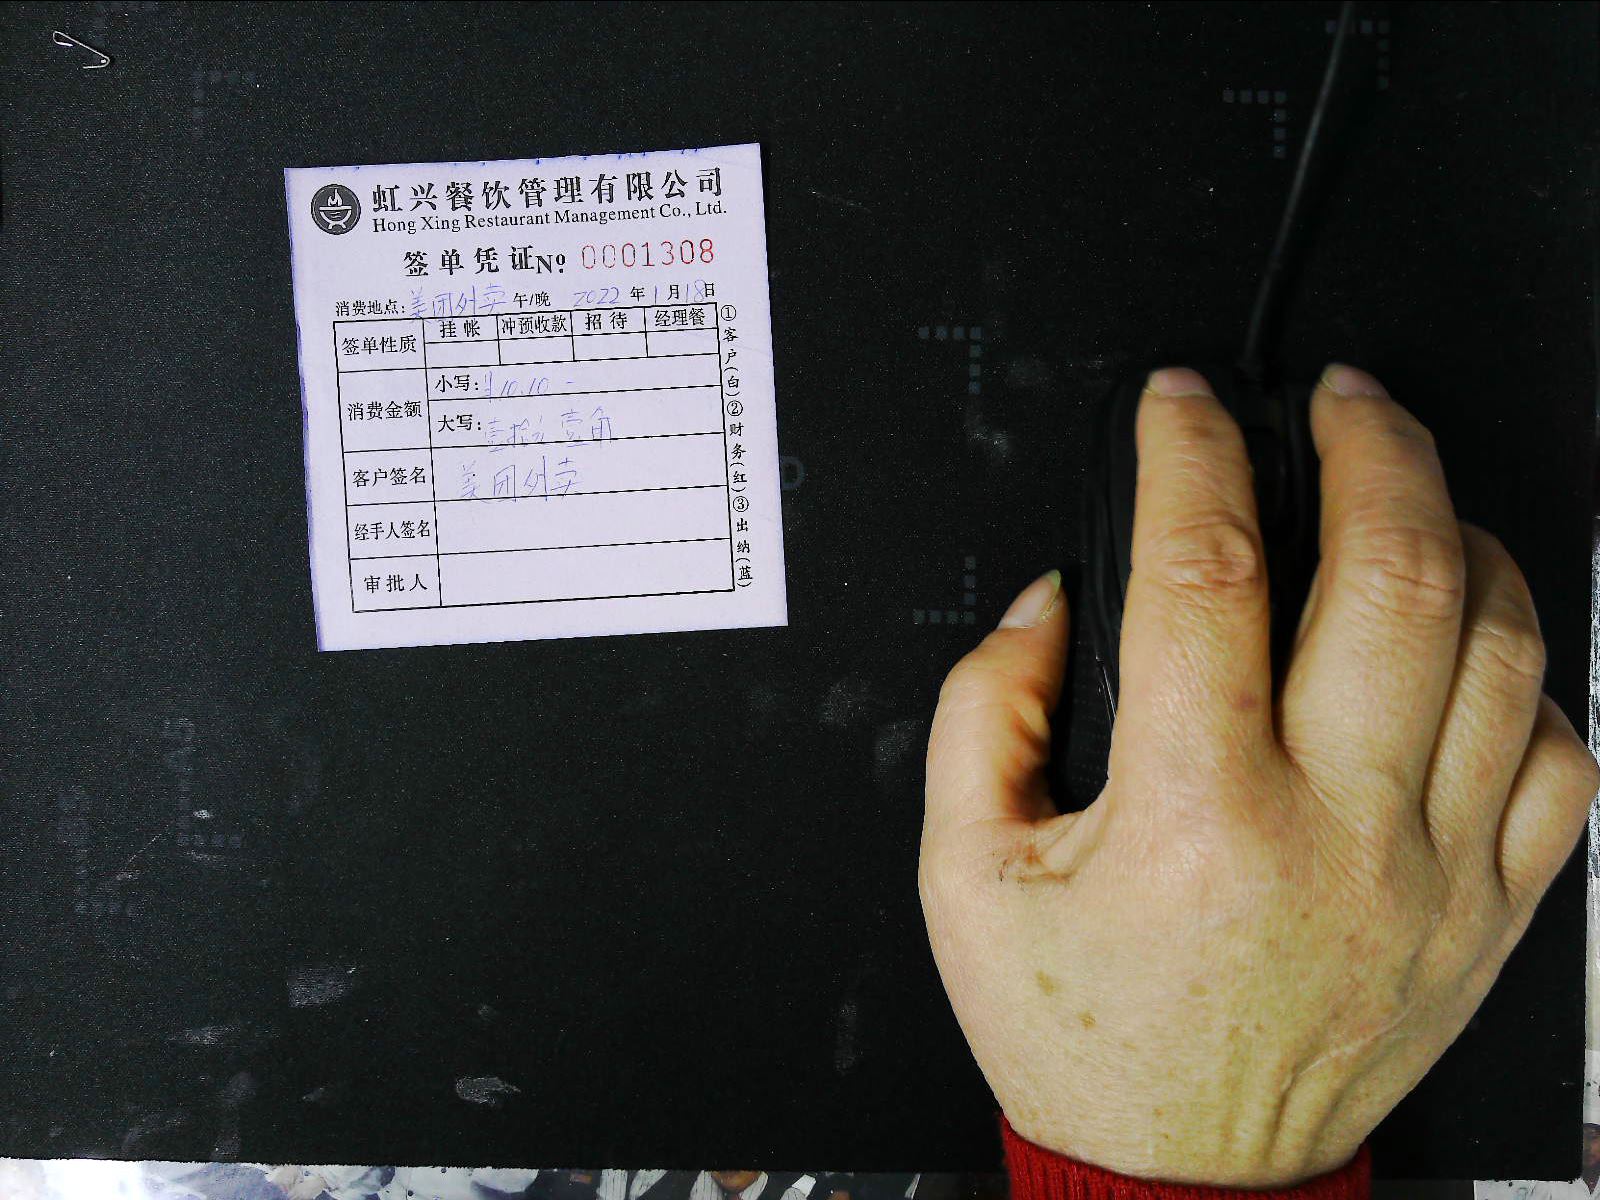 虹兴餐饮管理有限公司
Hong Xing Restaurant Management Co., Ltd.
签单凭证 No 0001308
消费地点: 美团外卖 午/晚 2022 年 1 月 18 日
签单性质 挂帐 冲预收款 招待 经理餐
消费金额 小写: ¥10.10-
大写: 壹拾元壹角
客户签名 美团外卖
经手人签名
审批人
①客户(白)②财务(红)③出纳(蓝)